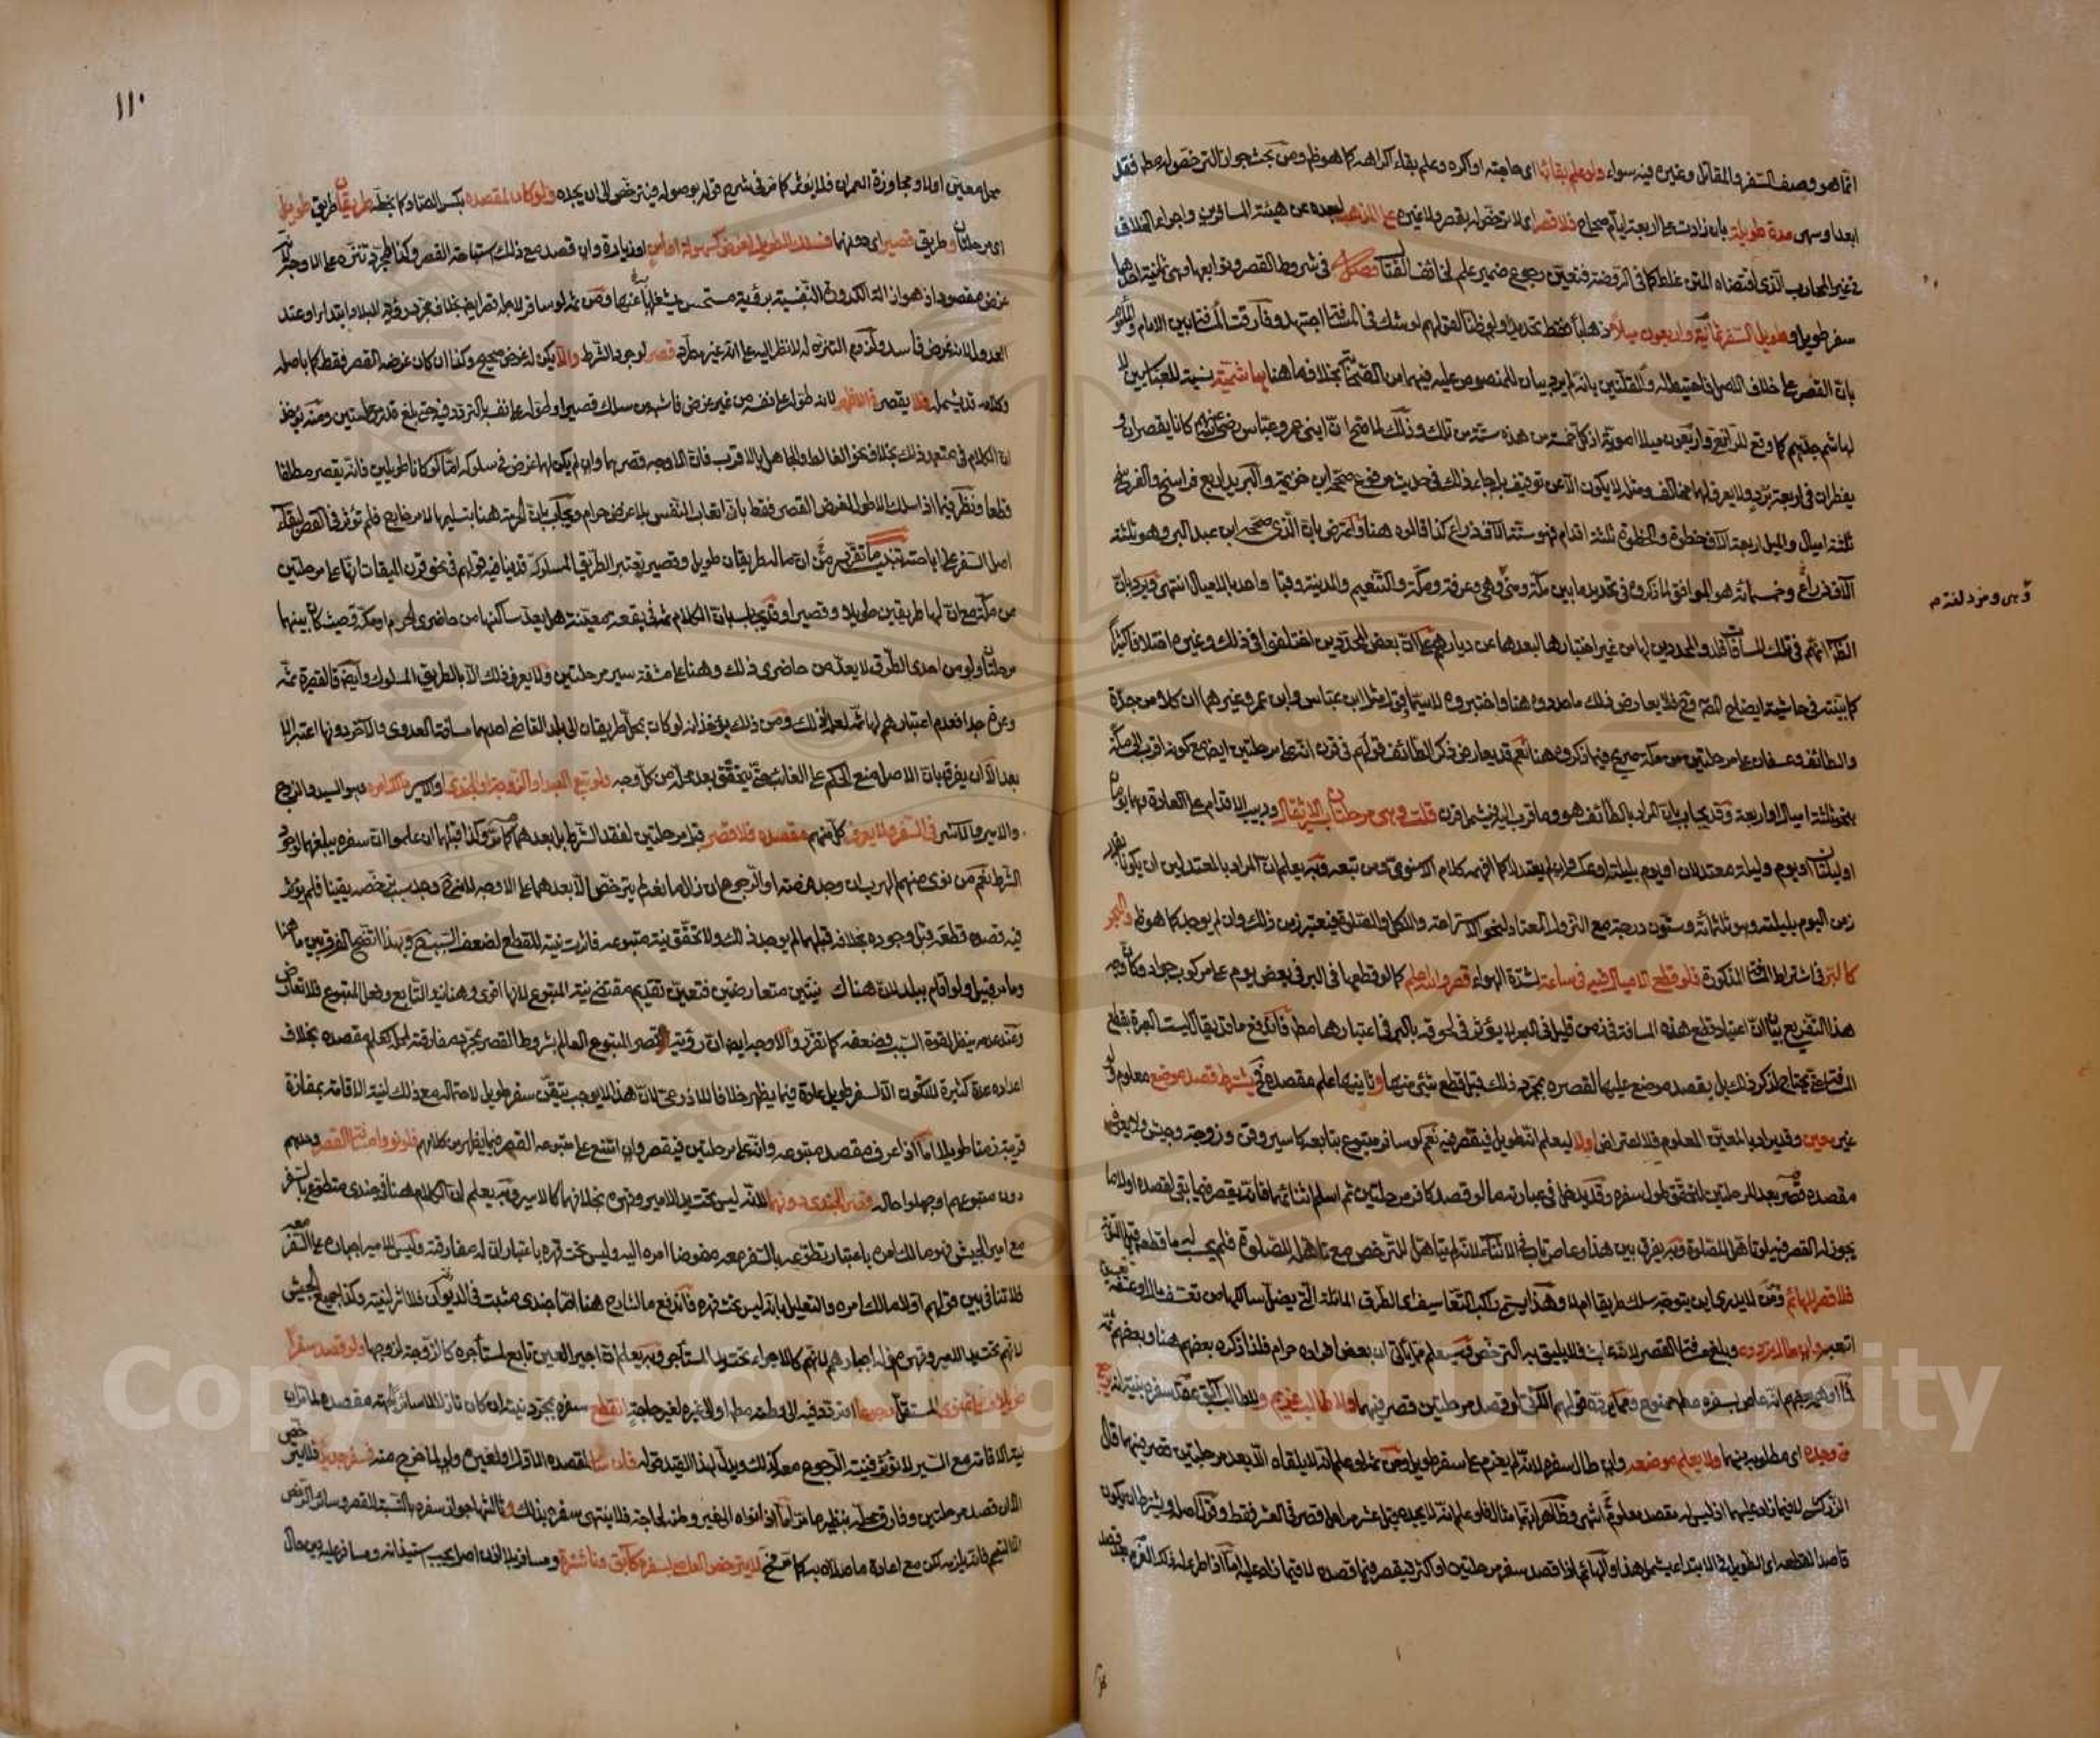 انما هو وصف السفر والمقاتل وغيره فيه سواء ولو علم بقائها اى حاجته او اكره وعلم بقاء اكراهه كما هو ظاهر ومن بحث جواز الترخص له مطلقا فقد
ابعد او سهى مدة طويلة بان زادت على اربعة ايام صحاح فلا قصر اى لا ترخص له بقصر ولا غيره على المذهب لبعده عن هيئة المسافرين واجراء الخلاف
فى غير المحارب الذى اقتضاه المتن غلط كما فى الروضة فتعين رجوع ضمير علم لخائف القتال فصل فى شروط القصر وتوابعها وهى ثمانية احدها
سفر طويل وطويل السفر ثمانية واربعون ميلا ذهابا فقط تحديدا ولو ظنا لقولهم لو شك فى المسافة اجتهد وفارقت المسافة بين الامام والمأموم
بان القصر على خلاف الاصل فاحتيط له والقلتين بانه لم يرد بيان للمنصوص عليه فيهما من الصحابة بخلاف ما هنا هاشمية نسبة للعباسيين لا
لهاشم جدهم كما وقع للرافعى واربعون ميلا اموية اذ كل خمسة من هذه ستة من تلك وذلك لما صح ان ابنى عمر وعباس رضى الله عنهم كانا يقصران و
يفطران فى اربعة برد ولا يعرف لهما مخالف ومثله لا يكون الا عن توقيف بل جاء ذلك فى حديث مرفوع صححه ابن خزيمة والبريد اربع فراسخ والفرسخ
ثلثة اميال والميل اربعة آلاف خطوة والخطوة ثلثة اقدام فهو ستة آلاف ذراع كذا قالوه هنا واعترض بان الذى صححه ابن عبد البر وهو ثلثة
آلاف ذراع وخمسمائة هو الموافق لما ذكروه فى تحديد ما بين مكة ومنى وهى وعرفة ومكة والتنعيم والمدينة وقبا واحد بالاميال انتهى ويرد بان
وهى ومزدلفة م
الظاهر انهم فى تلك المسافات قلدوا المحددين لها من غير اختبارها لبعدها عن ديارهم على ان بعض المحددين اختلفوا فى ذلك وغيره اختلافا كثيرا
كما بينته فى حاشية ايضاح المصنف وح فلا يعارض ذلك ما حددوه هنا واختبروه لا سيما وقول مثل ابن عباس وابن عمر وغيرهما ان كلا من جدة
والطائف وعسفان على مرحلتين من مكة صريح فيما ذكروه هنا نعم قد يعارض ذكر الطائف قولهم فى قرن انه على مرحلتين ايضا مع كونه اقرب الى مكة
بنحو ثلثة اميال او اربعة وقد يجاب بان المراد بالطائف هو وما قرب اليه فيشمل قرن قلت وهى مرحلتان بسير الاثقال ودبيب الاقدام على العادة وهما يومان
او ليلتان او يوم وليلة معتدلان او يوم بليلته او عكسه وان لم يعتدلا كما افهمه كلام الاسنوى ومن تبعه وبه يعلم ان المراد بالمعتدلين ان يكونا بقدر
زمن اليوم بليلته وهو ثلثمائة وستون درجة مع النزول المعتاد لنحو الاستراحة والاكل والصلوة فيعتبر زمن ذلك وان لم يوجد كما هو ظاهر والبحر
كالبر فى اشتراط المسافة المذكورة فلو قطع الاميال فيه فى ساعة لشدة الهواء قصر والله اعلم كما لو قطعها فى البر فى بعض يوم على مركوب جواد وكان وجه
هذا التفريع بيان ان اعتياد قطع هذه المسافة فى زمن قليل فى البحر لا يؤثر فى لحوقه بالبر فى اعتبارها مطلقا فاندفع ما قد يقال ليست العبرة بقطع
المسافة حتى يحتاج لذكر ذلك بل بقصد موضع عليها لقصره بمجرد ذلك قبل قطع شئ منها وثانيها علم مقصده فح يشترط قصد موضع معلوم ولو
غير معين وقد يراد بالمعين المعلوم فلا اعتراض اولا ليعلم انه طويل فيقصر فيه نعم لو سافر متبوع بتابعه كاسير وقن وزوجة وجيش ولا يعرف
مقصده قصر بعد المرحلتين لتحقق طول سفره وقد يدخل فى عبارته ما لو قصد كافر مرحلتين ثم اسلم اثنائهما فانه يقصر فيما بقى لقصده اولا ما
يجوز له القصر فيه لو تاهل للصلوة وبه يفرق بين هذا وعاص تاب فى الاثناء
فلا قصر للهائم وهو من لا يدرى اين يتوجه سلك طريقا ام لا وهذا يسمى راكب التعاسيف اى الطرق المائلة التى يضل سالكها من تعسف مال او عسفه
اتعبه وان طال تردده وبلغ مسافة القصر لانه عابث فلا يليق به الترخص وسيعلم مما يأتى ان بعض افراده حرام فلذا ذكره بعضهم هنا وبعضهم ثمه
ولا طالب غريم ولا طالب آبق عقد سفره بنيته انه يرجع
متى وجده اى مطلوبه منهما ولا يعلم موضعه وان طال سفره لانه لم يعزم على سفر طويل ومن ثم لو علم انه لا يلقاه الا بعد مرحلتين قصر فيهما قال
الزركشى لا فيما زاد عليهما اذ ليس له مقصد معلوم انتهى وظاهر انهما مثال فلو علم انه لا يجده قبل عشر مراحل قصر فى العشر فقط ويشترط ان يكون
قاصدا لقطعه اى الطويل فى الابتداء يشمل هذا والهائم اذا قصد سفر مرحلتين او اكثر فيقصر فيما قصده لا فيما زاد عليه اما اذا طرأ عليه ذلك العزم بعد قصد
١١٠
محل معين اولا ومجاوزة العمران فلا يؤثر كما مر فى شرح قوله بوصوله فيترخص الى ان يجده ولو كان لمقصده بكسر الصاد كما بخطه طريقان طريق طويل
اى مرحلتان وطريق قصير اى دونهما فسلك الطويل لغرض كسهولة او امن او زيارة وان قصد مع ذلك استباحة القصر وكذا لمجرد تنزه على الاوجه لانه
غرض مقصود اذ هو ازالة الكدورة النفسية برؤية مستحسن يشغلها عنها ومن ثم لو سافر لاجله قصر ايضا بخلافه لمجرد رؤية البلاد ابتداء او عند
العدول لانه غرض فاسد قصر لوجود الشرط والا يكن له غرض صحيح وكذا ان كان غرضه القصر فقط كما باصله
وكلامه قد يشمله فلا يقصر فى الاظهر لانه طول على نفسه من غير غرض فاشبه من سلك قصيرا وطوله على نفسه بالتردد فيه حتى بلغ قدر مرحلتين ومنه يؤخذ
ان الكلام فى متعمد ذلك بخلاف نحو الغالط والجاهل بالاقرب فان الاوجه قصرهما وان لم يكن لهما غرض فى سلوكه اما لو كانا طويلين فانه يقصر مطلقا
قطعا ونظر فيما اذا سلك الاطول لغرض القصر فقط بان اتعاب النفس بلا غرض حرام ويجاب بان الحرمة هنا بتسليمها لامر خارج فلم تؤثر فى القصر لبقاء
اصل السفر على اباحته تنبيه ما تقرر من ان ما له طريقان طويل وقصير تعتبر الطريق المسلوكة قد ينافيه قولهم فى نحو قرن الميقات انها على مرحلتين
من مكة مع ان لها طريقين طويلا وقصيرا وقد يجاب بان الكلام ثم فى بقعة معينة هل يعد ساكنها من حاضرى الحرم او مكة وحيث كان بينهما
مرحلتان ولو من احدى الطرق لا يعد من حاضرى ذلك وهنا على مشقة سير مرحلتين ولا يعرف ذلك الا بالطريق المسلوك وايضا فالقصيرة ثمه
وعرة جدا فعدم اعتبارهم لها ثم لعله لذلك ومن ذلك يؤخذ انه لو كان بمحل طريقان الى بلد القاضى احدهما مسافة العدوى والاخر دونها اعتبر الا
بعد الا ان يفرق بان الاصل منع الحكم على الغائب حتى يتحقق بعد محله من كل وجه ولو تبع العبد او الزوجة او الجندى او الاسير مالك امره وهو السيد والزوج
والامير والآسر فى السفر ولا يعرف كل منهم مقصده فلا قصر قبل مرحلتين لفقد الشرط بل بعدهما كما مر وكذا قبلهما ان علموا ان سفره يبلغهما لوجود
الشرط نعم من نوى منهم الهرب ان وجد فرصة او الرجوع ان زال مانعه لم يترخص الا بعدهما على الاوجه للمغزى وجد سبب ترخصه يقينا فلم يؤثر
فيه قصده قطعه قبل وجوده بخلافه قبلهما لم يوجد ذلك ولا تحقق نية متبوعه فاثرت نيته للقطع لضعف السبب ح وبهذا اتضح الفرق بين ما هنا
وما مر قبيل ولو اقام ببلد لان هناك نيتين متعارضتين فتعين تقديم مقتضى نية المتبوع لانها اقوى وهنا نية التابع وفعل المتبوع فلا تعارض
وعند عدمه ينظر لقوة السبب وضعفه كما تقرر والاوجه ايضا ان رؤية قصر المتبوع العالم بشروط القصر بمجرد مفارقته لمحله كعلم مقصده بخلاف
اعداده عدة كثيرة لا تكون الا لسفر طويل عادة فيما يظهر خلافا للاذرعى لان هذا لا يوجب تيقن سفر طويل لاحتماله مع ذلك لنية الاقامة بمفازة
قريبة زمنا طويلا اما اذا عرف مقصد متبوعه وانه على مرحلتين فيقصر وان امتنع على متبوعه القصر فيما يظهر من كلامهم فلو نووا مسافة القصر وحدهم
دون متبوعهم او جهلوا حاله قصر الجندى دونهما لانه ليس تحت يد الامير وقهره بخلافهما كالاسير وبه يعلم ان الكلام هنا فى جندى متطوع بالسفر
مع امير الجيش فهو مالك امره باعتبار تطوعه بالسفر معه مفوضا امره اليه وليس تحت قهره باعتبار ان له مفارقته وليس للامير اجباره على السفر معه
فلا تنافى بين قولهم اولا مالك امره والتعليل بانه ليس تحت قهره فاندفع ما للشارح هنا اما جندى مثبت فى الديوان فلا اثر لنيته وكذا جميع الجيش
لانهم تحت يد الامير وقهره فله اجبارهم لانهم كالاجراء تحت يد المستأجر وبه يعلم ان اجير العين تابع لمستأجره كالزوجة لزوجها ولو قصد سفرا
طويلا فسار ثم نوى المستقل رجوعا او تردد فيه الى وطنه مطلقا او الى غيره لغير حاجة انقطع سفره بمجرد نيته ان كان نازلا لا سائرا لجهة مقصده لما مر ان
نية الاقامة مع السير لا تؤثر فنية الرجوع معه كذلك ويدل لهذا التقييد قوله فان سار لمقصده الاول او لغيره ولو لما خرج منه فسفر جديد فلا يترخص
الا ان قصد مرحلتين وفارق محله نظير ما مر اما اذا نواه الى غير وطنه لحاجة فلا ينتهى سفره بذلك وثالثها جواز سفره بالنسبة للقصر وسائر الرخص
الا التيمم فانه يلزمه لكن مع اعادة ما صلاه به كما مر فح لا يترخص العاصى بسفره كآبق وناشزة ومسافر بلا اذن اصل يجب استيذانه ومسافر عليه دين حال